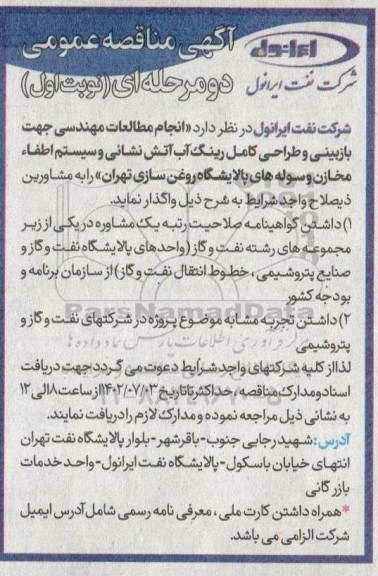 آگهی مناقصه عمومی
دو مرحله ای (نوبت اول)
ایرانول
شرکت نفت ایرانول
شرکت نفت ایرانول در نظر دارد «انجام مطالعات مهندسی جهت
بازبینی و طراحی کامل رینگ آب آتش نشانی و سیستم اطفاء
مخازن و سوله های پالایشگاه روغن سازی تهران» را به مشاورین
ذیصلاح واجد شرایط به شرح ذیل واگذار نماید.
۱) داشتن گواهینامه صلاحیت رتبه یک مشاوره در یکی از زیر
مجموعه های رشته نفت و گاز (واحدهای پالایشگاه نفت و گاز و
صنایع پتروشیمی، خطوط انتقال نفت و گاز) از سازمان برنامه و
بودجه کشور
ParsNamadData
۲) داشتن تجربه مشابه موضوع پروژه در شرکتهای نفت و گاز و
پتروشیمی
لذا از کلیه شرکتهای واجد شرایط دعوت می گردد جهت دریافت
اسناد و مدارک مناقصه، حداکثر تا تاریخ ۱۴۰۲/۰۷/۰۳ از ساعت ۸ الی ۱۲
به نشانی ذیل مراجعه نموده و مدارک لازم را دریافت نمایند.
آدرس: شهید رجایی جنوب - باقرشهر - بلوار پالایشگاه نفت تهران
انتهای خیابان باسکول - پالایشگاه نفت ایرانول - واحد خدمات
بازرگانی
*همراه داشتن کارت ملی، معرفی نامه رسمی شامل آدرس ایمیل
شرکت الزامی می باشد.